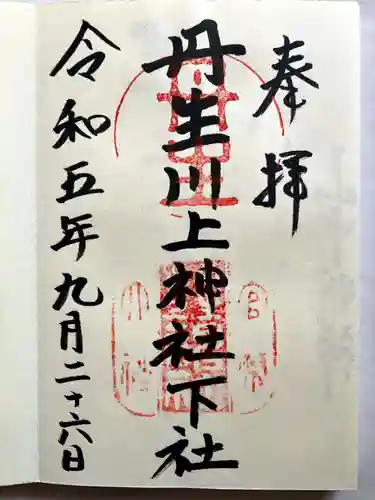 奉拝
丹生川上神社下社
令和五年九月二十六日